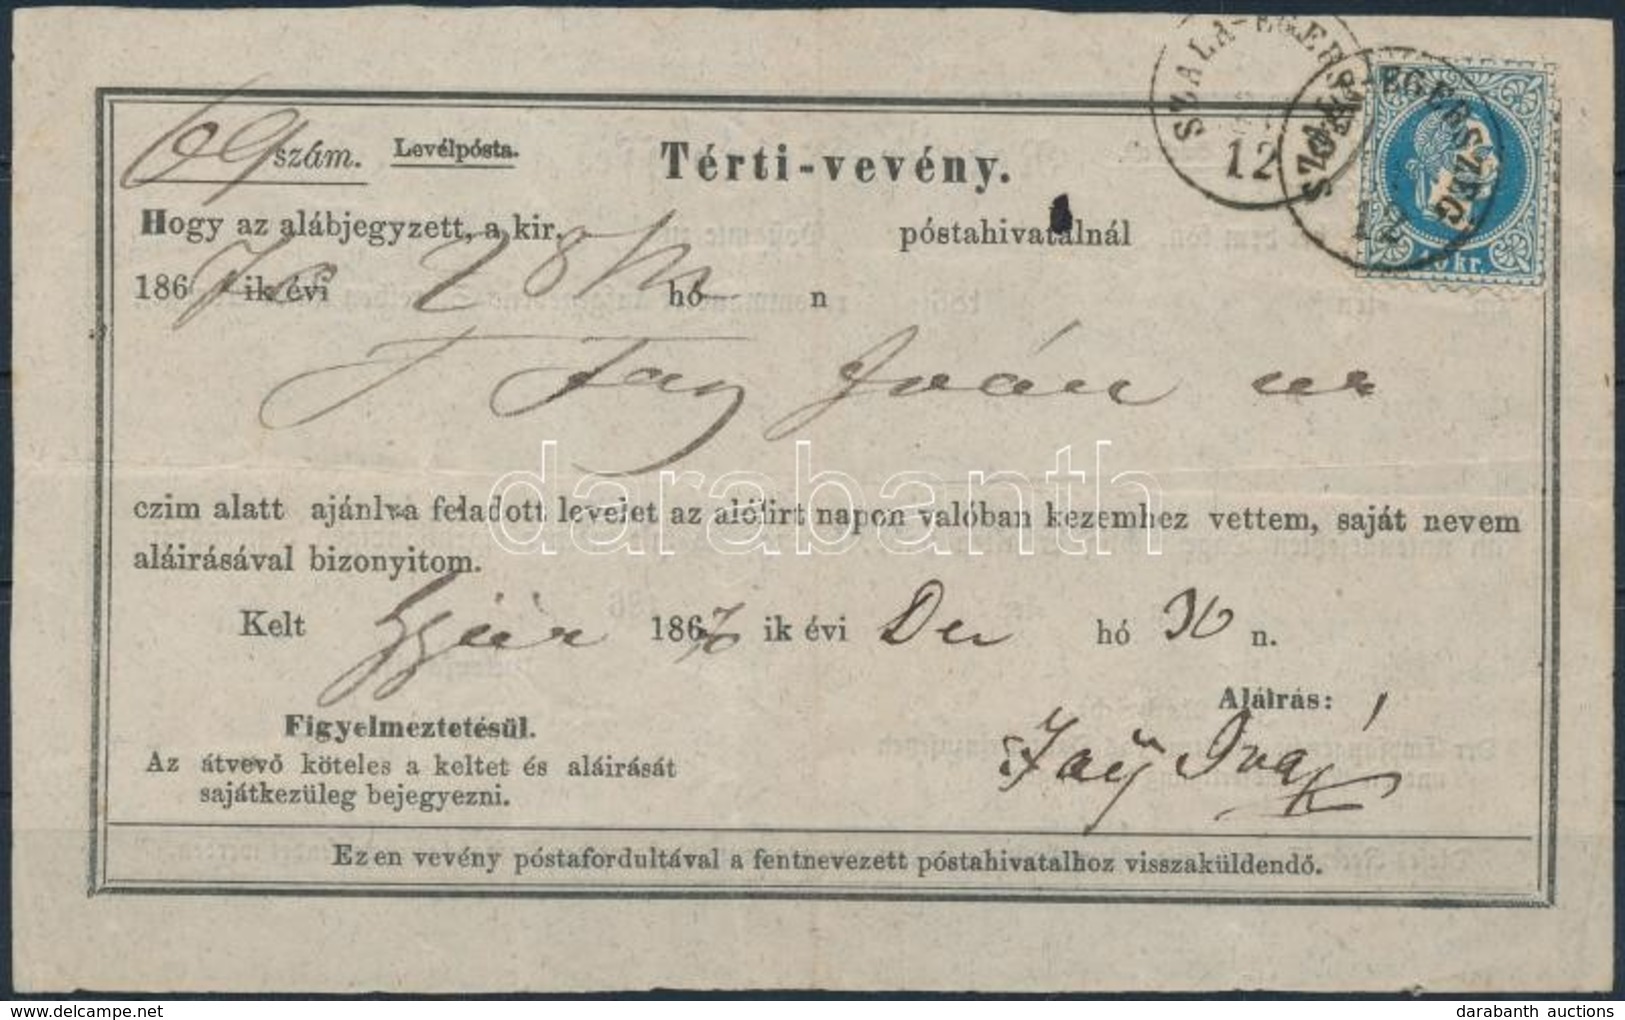 SZALA-EGERSZEG
12
SZALA-EGERSZEG
12
10 kr.
69 szám. Levélpósta. Tértí-vevény.
Hogy az alábjegyzett, a kir. póstahivatalnál
1867 ik évi 28 hó n
Fay Iván ur
czim alatt ajánlva feladott levelet az alólirt napon valóban kezemhez vettem, saját nevem
aláirásával bizonyitom.
Kelt 1867 ik évi Dec hó 30 n.
Aláirás:
Fay Iván
Figyelmeztetésül.
Az átvevő köteles a keltet és aláirását
sajátkezüleg bejegyezni.
Ezen vevény póstafordultával a fentnevezett póstahivatalhoz visszaküldendő.
darabanth
darabanth auctions